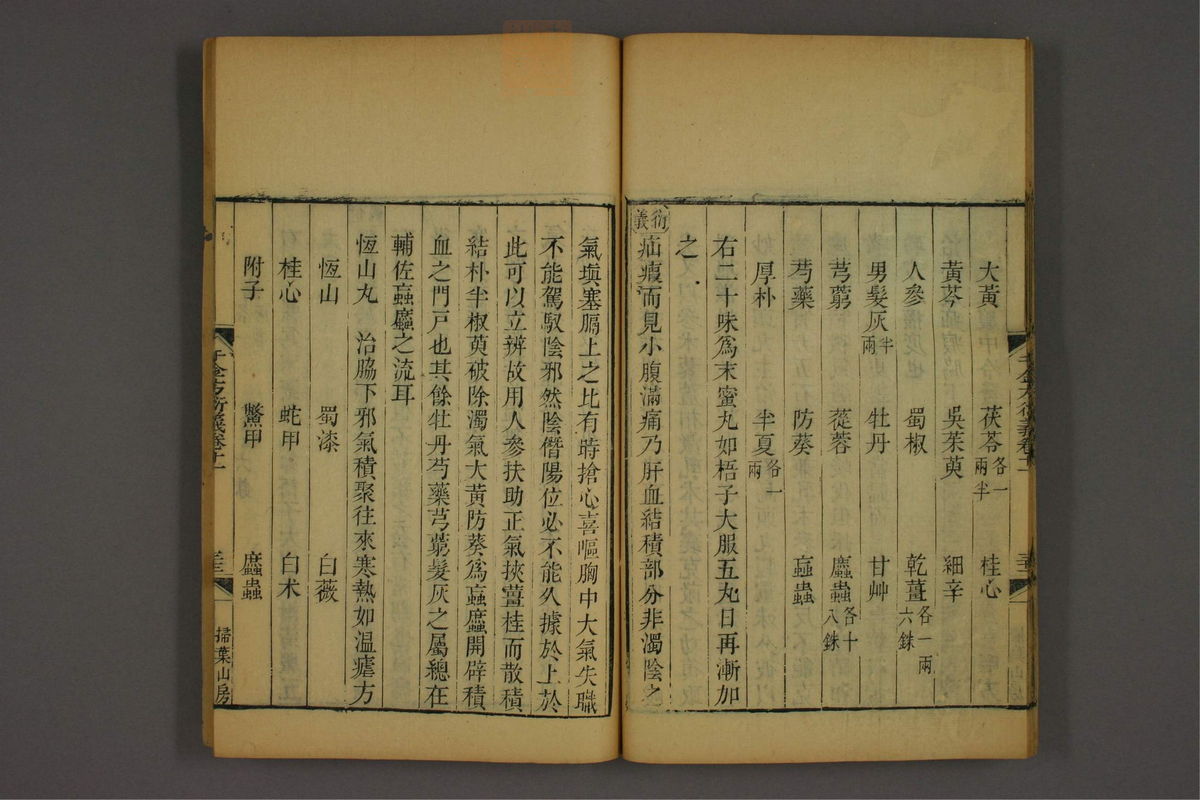 大黃 茯苓各一兩半 桂心
黃芩 吳茱萸 細辛
人參 蜀椒 乾薑各一兩六銖
男髮灰半兩 牡丹 甘艸
芎藭 蓯蓉 䗪蟲各十八銖
芍藥 防葵 蝱蟲
厚朴 半夏各一兩
右二十味爲末蜜丸如梧子大服五丸日再漸加
之
衍義 疝瘕而見小腹滿痛乃肝血結積部分非濁陰之
氣塡塞膈上之比有時搶心喜嘔胸中大氣失職
不能駕馭陰邪然陰僭陽位必不能久據於上於
此可以立辨故用人參扶助正氣挾薑桂而散積
結朴半椒萸破除濁氣大黃防葵爲蝱䗪開辟積
血之門戶也其餘牡丹芍藥芎藭髮灰之屬總在
輔佐蝱䗪之流耳
恆山丸 治脇下邪氣積聚往來寒熱如溫瘧方
恆山 蜀漆 白薇
桂心 蛇甲 白术
附子 鱉甲 䗪蟲
千金方衍義卷十一 三三 掃葉山房